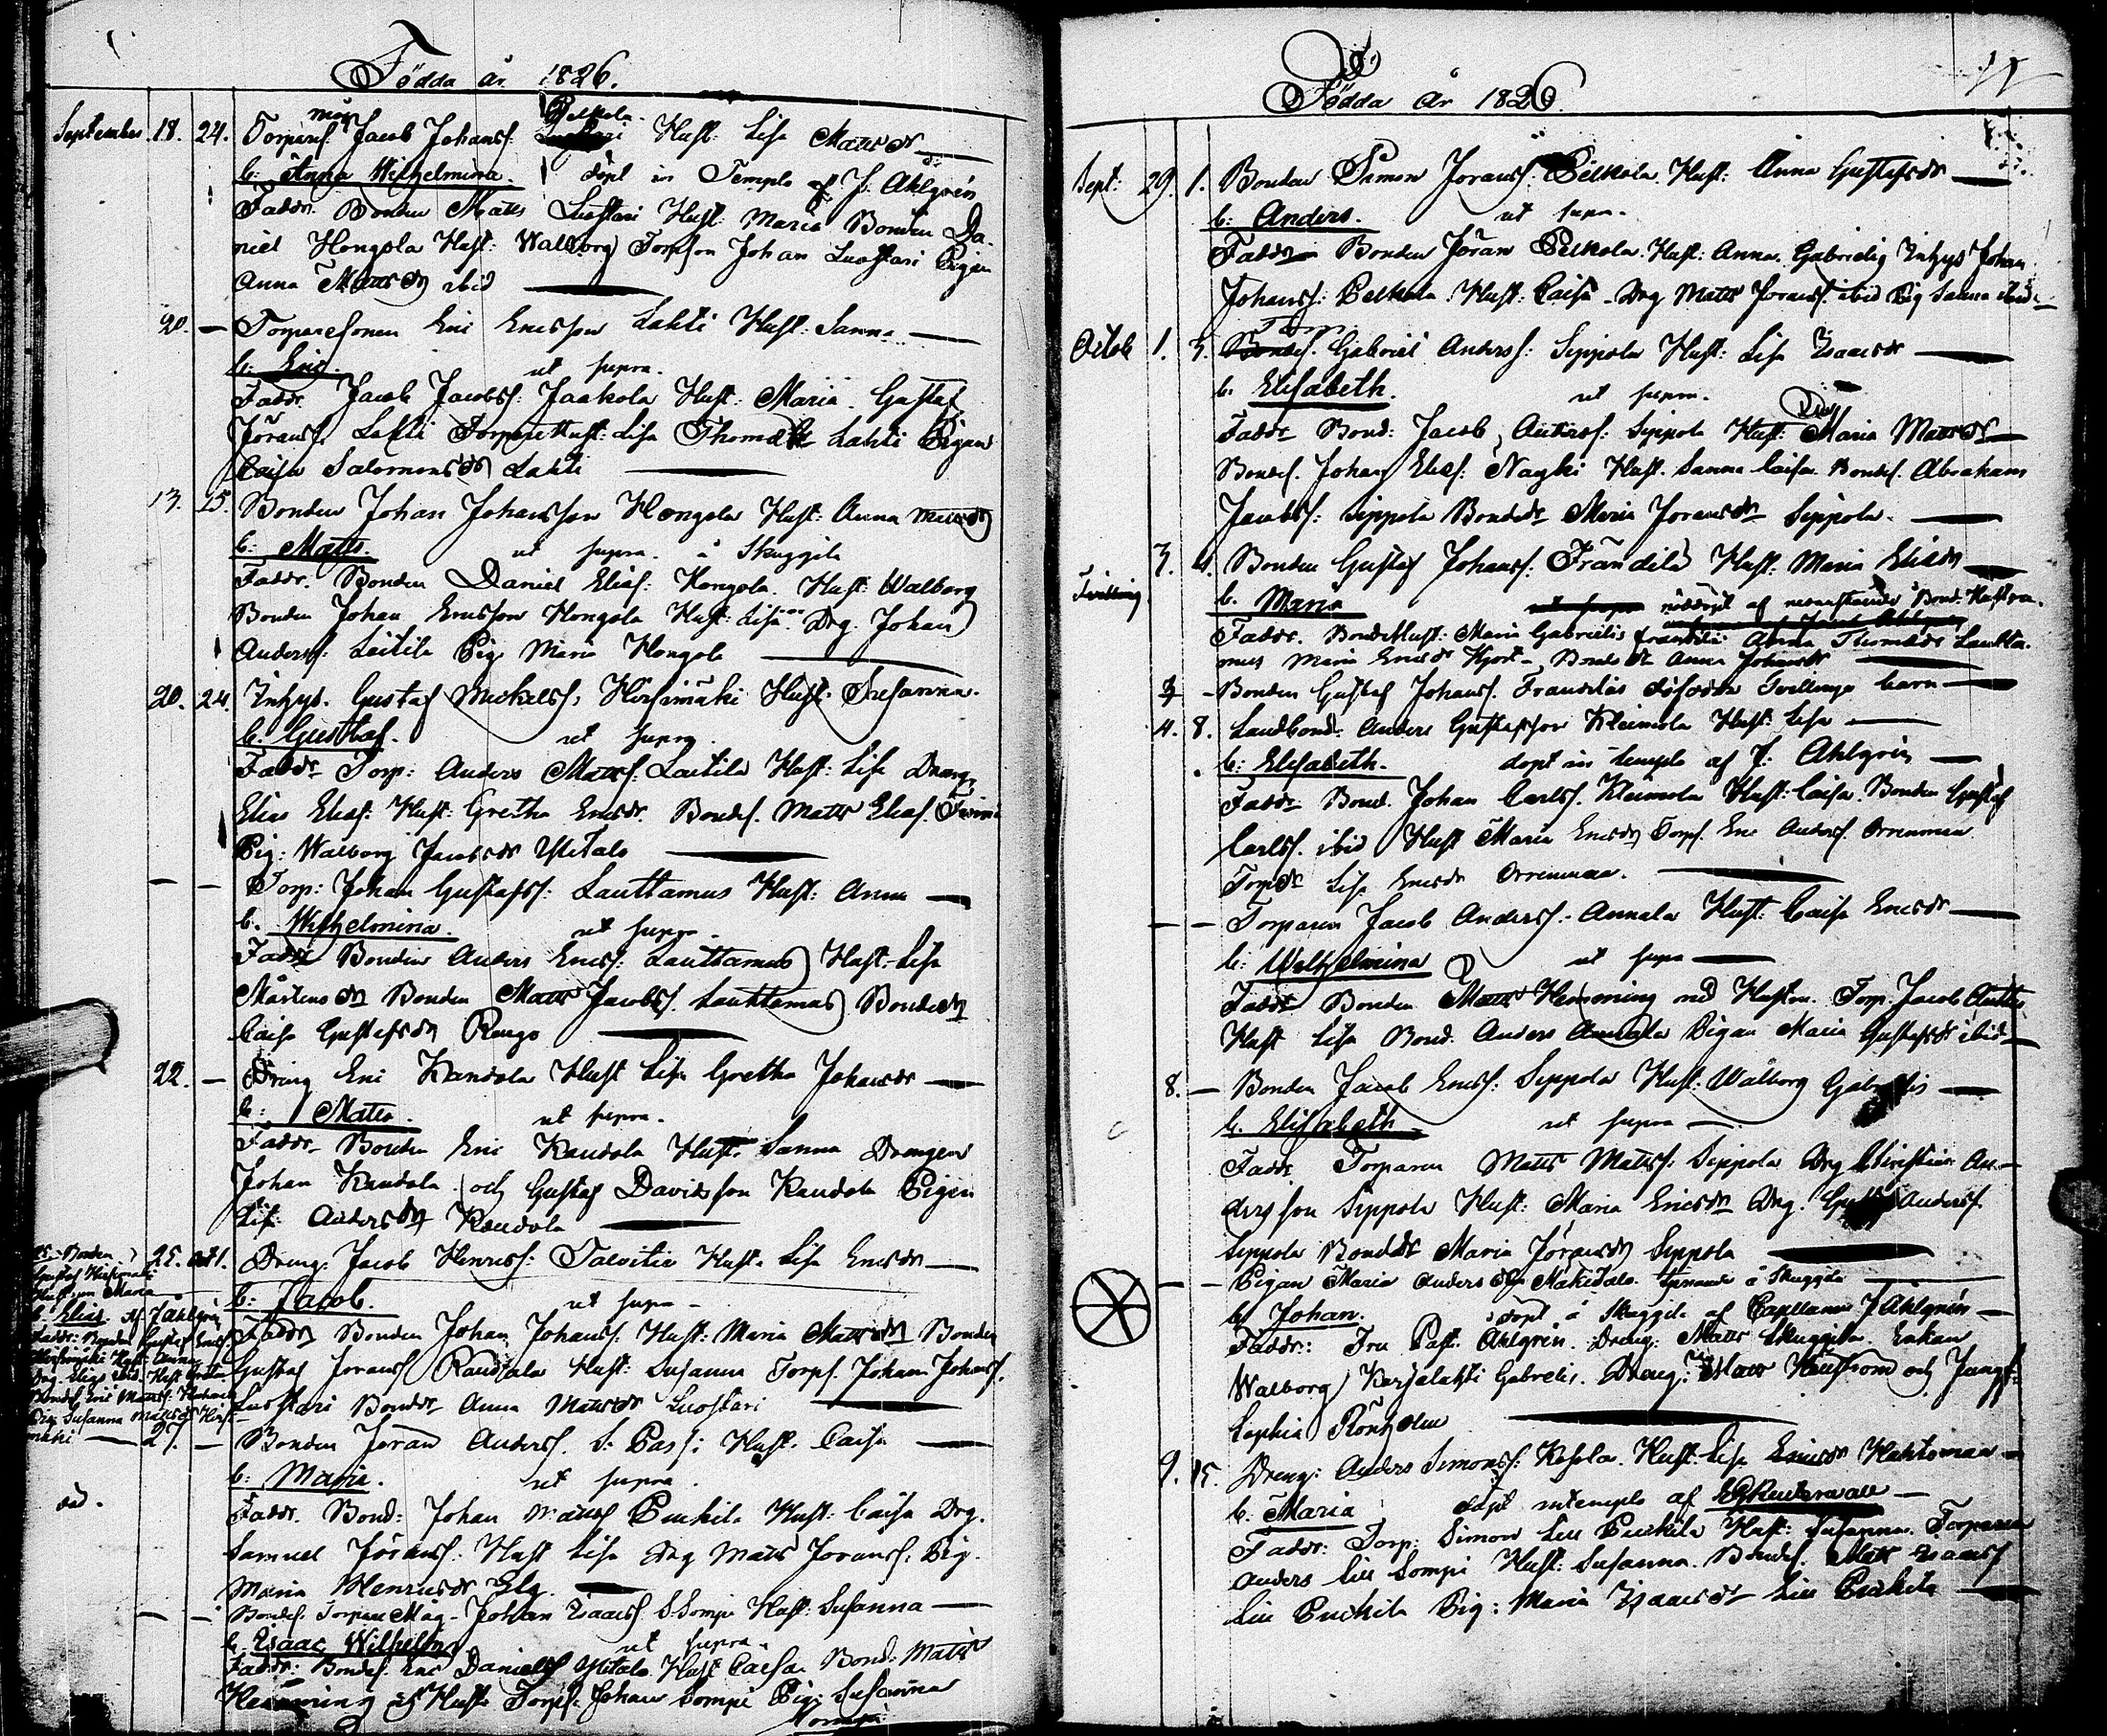 Födda år 1826.
September. 18. 24. Torparef måg Jacob Johanss: Pelkola Hust: Lisa Mattsdr
b: Anna Wilhelmina. döpt in Templo af J: Ahlgrén
Faddr. Bonden Matts Luostari Hust: Maria Bonden Da-
niel Hongola Hust: Walborg Torpson Johan Luostari Pigan
Anna Mattsdr ibid
20. — Torparesonen Eric Ericsson Lahti Hust: Sanna
b: Eric. ut supra.
Faddr. Jacob Jacobss: Jaakola Hust: Maria. Gustaf
Jöranss. Lahti Torpare Hust: Lisa Thomædr Lahti Pigan
Caisa Salomonsdr Lahti
13. 15. Bonden Johan Johansson Hongola Hust: Anna Mattsdr
b: Matts. ut supra. å Skuggila
Faddr. Bonden Daniel Eliæs: Hongola. Hust: Walborg
Bonden Johan Ericsson Hongola Hust: Lisa. Drg. Johan
Anderss: Laitila Pig. Maria Hongola
20. 24. Inhys. Gustaf Mickelss: Hirsimäki Hust: Susanna.
b: Gustaf. ut supra.
Faddr Torp: Anders Mattss: Laitila Hust: Lisa Dreng
Elias Eliæs: Hust: Gretha Ericsdr. Bondes. Matts Eliæs.
Pig: Walborg Jacobsdr Ylitalo
— — Torp: Johan Gustafss: Lauttamus Hust: Anna
b. Wilhelmina. ut supra.
Faddr Bonden Anders Ericss: Lauttamus Hust: Lisa
Mårtensdr Bonden Matts Jacobss. Lauttamus Bondedr
Caisa Gustafsdr Rengo
22. — Dreng Eric Kandola Hust Lisa Gretha Johansdr
b: Matts. ut supra.
Faddr. Bonden Eric Kandola Hust. Sanna Drengen
Johan Kandola och Gustaf Davidsson Kandola Pigan
Lis: Andersdr Kandola
25. oct 1. Dreng. Jacob Henrics: Talvitie Hust. Lisa Ericsdr
b: Jacob. ut supra
Faddr Bonden Johan Johanss: Hust: Maria Mattsdr Bonden
Gustaf Jöranss Hust: Susanna Torps. Johan Johanss.
Luostari Bondedr Anna Mattsdr Luostari
25. Bonden
Gustaf Hirsimäki
Hustrun Maria
b. Elias af J Ahlgrén
Faddr: Bonden Gustaf Ericss
Hirsimäki Hust: Anna
Drg. Elias ibid. Hust. Gretha
Bondes Eric Mattss:
Pig Susanna Mattsdr Hirsi-
mäki
27. — Bonden Jöran Anderss. S: Passi Hust. Caisa
b: Maria. ut supra.
Faddr. Bond: Johan Matss Puckila Hust: Caisa Drg.
Samuel Jöranss: Hust Lisa Drg Matts Jöranss. Pig.
Maria Henricsdr Elg.
— — Bondes. Torpare Måg. Johan Isaacss S. Sompi Hust: Susanna
b. Isaac Wilhelm ut supra.
Faddr: Bondes. Eric Danielss Ylitalo. Hust Caisa. Bond: Matts
Hemming och Hust. Torps. Johan Sompi Pig: Susanna
Sompi
Födda år 1826.
Sept: 29. 1. Bonden Simon Jöranss: Pelkola. Hust: Anna Gustafsdr
b: Anders. ut supra.
Faddr Bonden Jöran Pelkola. Hust: Anna Gabrielis Inhys Johan
Johanss: Pelkola. Hust: Caisa. Drg Matts Jöranss: ibid Pig Sanna ibid
Octob 1. 3. Torp. Gabriel Anderss: Seppola Hust: Lisa Isaacsdr
b. Elisabeth. ut supra.
Faddr Bond: Jacob Anderss: Seppola Hust: Maria Mattsdr
Bondes. Johan Eliæs. Nayki Hust. Sanna Caisa. Bondes. Abraham
Jacobss: Seppola Bondedr Maria Jöransdr Seppola.
3. 4. Bonden Gustaf Johanss: Frändilä Hust: Maria Eliædr
Tvilling b. Maria nöddöpt af nedanstående Bond. Hustru.
Faddr. Bonde Hust: Maria Gabrielis Frändilä. Anna Thomædr Lautta-
mus Maria Ericsdr Hjort. Bondedr Anna Johansdr
3 — Bonden Gustaf Johanss. Frändiläs dödfödda Tvillinge barn
4. 8. Landbond. Anders Gustafsson Kleimola Hust: Lisa
b: Elisabeth. döpt in templo af J. Ahlgrén
Faddr Bond. Johan Carlss. Kleimola Hust: Caisa. Bonden Gustaf
Carlss. ibid Hust Maria Ericsdr Torps. Eric Anderss. Orrenmaa
Torpdr Lisa Ericsdr Orrenmaa.
— — Torparen Jacob Anderss. Annala Hust: Caisa Ericsdr
b: Wilhelmina ut supra
Faddr Bonden Matts Hemming med Hustru. Torp. Jacob
Hust Lisa Bond. Anders Annala Pigan Maria Gustafsdr ibid
8. — Bonden Jacob Ericss: Seppola Hust: Walborg Gabrielis
b. Elisabeth ut supra
Faddr Torparen Matts Mattss: Seppola Drg Christian An-
dersson Seppola Hust: Maria Ericsdr Drg. Gustaf Anderss.
Seppola Bonddr Maria Jöransdr Seppola
— — Pigan Maria Andersdr Mäkitalo. tjenande å Skuggila
b Johan. döpt å Skuggila af Capellanen J Ahlgrén
Faddr: Fru Past. Ahlgrén. Dreng: Matts Skuggila. Enkan
Walborg Karjalahti Gabrelis. Dreng: och Jungf:
Sophia Rönholm
9. 15. Dreng: Anders Simonss: Kesola. Hust: Lisa Ericsdr
b. Maria döpt in templo af
Faddr: Torp. Simon Lill Puckila Hust: Susanna. Torparen
Anders Lill Sompi Hust: Susanna. Bondes. Matts Isaacss
Lill Puckila Pig: Maria Isaacsdr Lill Puckila